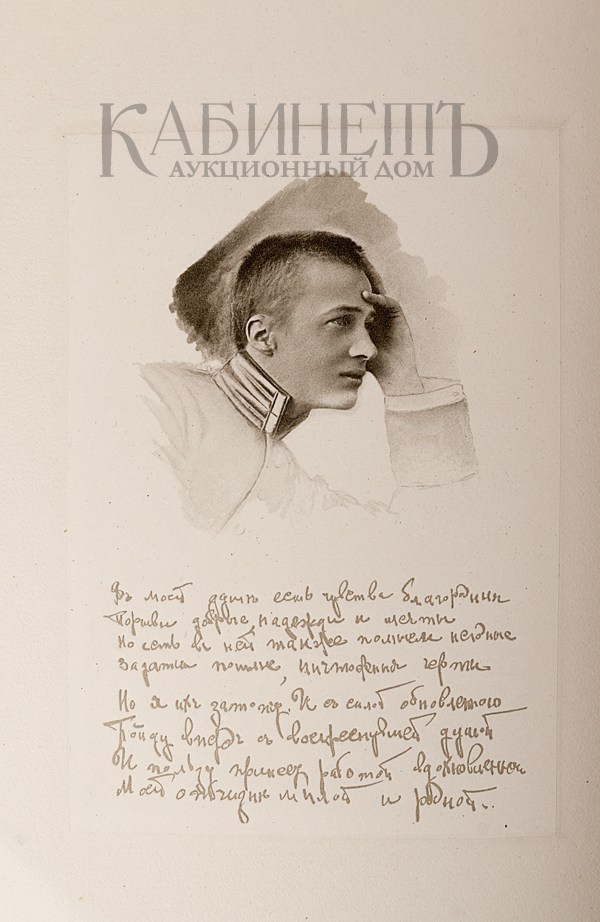 КАБИНЕТЪ
АУКЦИОННЫЙ ДОМ
Въ моей душѣ есть чувства благородныя
Порывы добрые, надежды и мечты
Но есть въ ней также
задатки пошлые, ничтожныя черты
Но я ихъ затопчу. И съ силой обновленною
Пойду впередъ съ воскреснувшей душой
И пользу принесу работой вдохновенной
Моей отчизнѣ милой и родной..